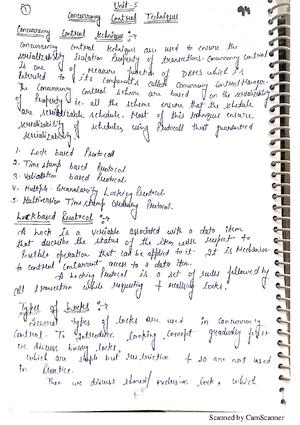 1
Unit-5
Concurrency Control Technique
Concurrency Control technique :-
Concurrency Control technique are used to ensure the
serializability Isolation Property of transactions. Concurrency control
is one of measure function of DBMS which is
referred to its Component called Concurrency Control Manager.
The Concurrency Control scheme are based on the serializability
of Property i.e. all the scheme ensure that the schedule
are serializable schedule. Most of this techniques ensure
serializability of schedules using Protocall that guaranteed
serializability.
1. Lock based Protocall
2. Time stamp based Protocol
3. Validation based Protocol
4. Multiple Granularity Locking Protocol.
5. Multiversion Time stamp Protocol.
Lock based Protocol :-
A lock is a veriable associated with a data item
that describe the status of the item with respect to
Possible operation that can be applied to it. It is Mechanism
to control Concurrent access to a data item.
A locking Protocol is a set of rules followed by
all transaction while requesting & releasing locks.
Types of Locks :-
Several types of locks are used in concurrency
Control. To Introduce Locking concept gradually first
we discuss binary locks,
which are simple but restrictive & so are not used
in Practice.
Then we discuss shared/exclusive lock, which
Scanned by CamScanner